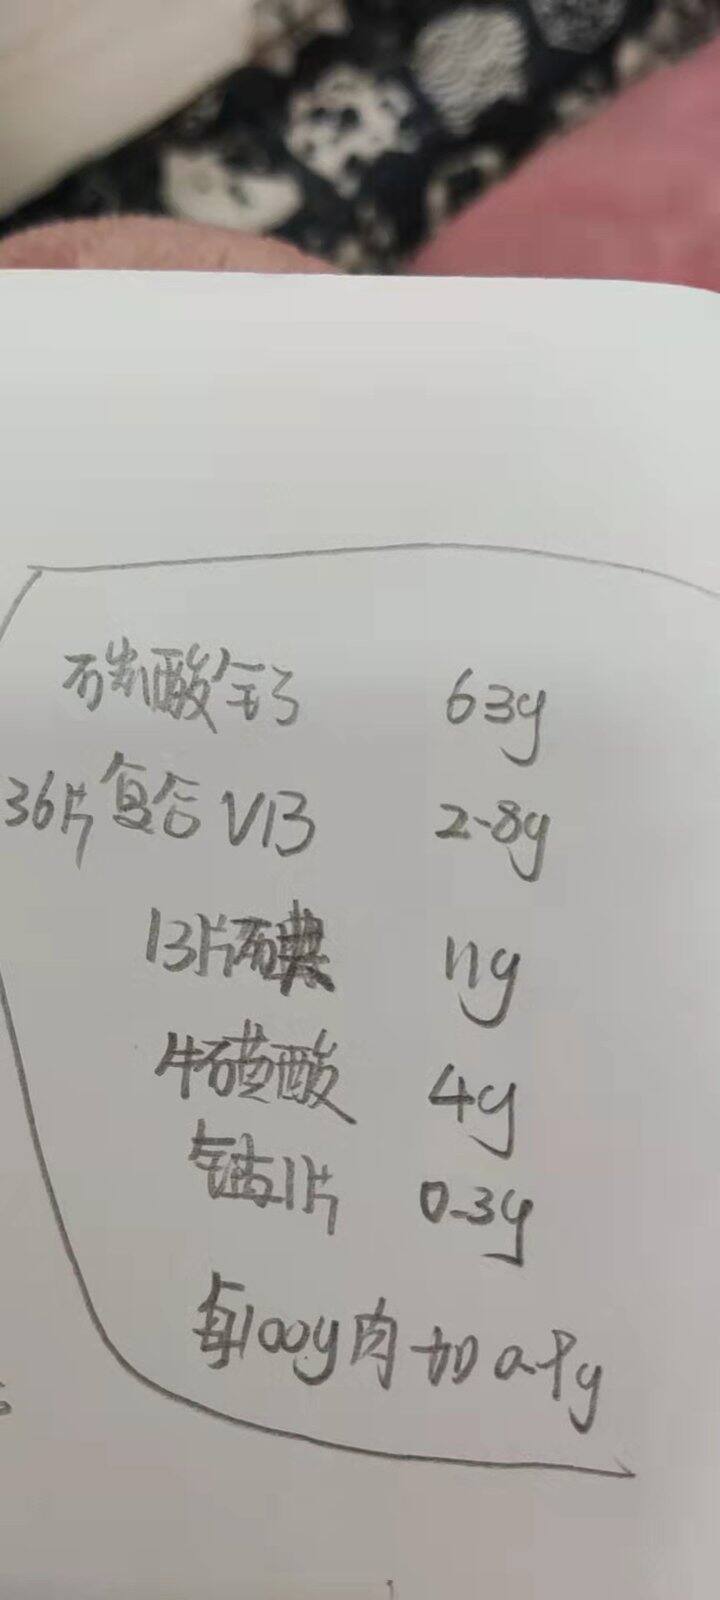 碳酸钙 63g
36片复合VB 2.8g
13片碘 11g
牛磺酸 4g
1片 0.3g
每100g肉加